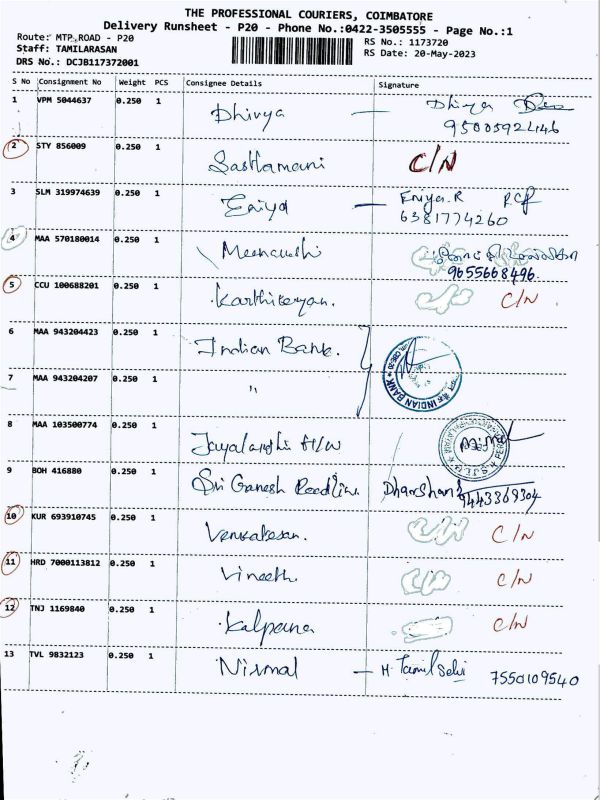 THE PROFESSIONAL COURIERS, COIMBATORE
Delivery Runsheet - P20 - Phone No.:0422-3505555 - Page No.:1
Route: MTP ROAD - P20
Staff: TAMILARASAN
DRS No.: DCJB117372001
RS No.: 1173720
RS Date: 20-May-2023
S No Consignment No Weight PCS Consignee Details Signature
1 VPM 5044637 0.250 1 Dhivya — Dhivya
9500592446
2 STY 856009 0.250 1 Sasthamani C/N
3 SLM 319974639 0.250 1 Eniya — Eniya.R
6381774260
4 MAA 570180014 0.250 1 Meenakshi
9655668496.
5 CCU 100688201 0.250 1 Karthikeyan. C/N
6 MAA 943204423 0.250 1 Indian Bank.
INDIAN BANK
7 MAA 943204207 0.250 1 "
8 MAA 103500774 0.250 1
9 BOH 416880 0.250 1 Sri Ganesh
9443369304
10 KUR 693910745 0.250 1 Venkatesan. C/N
11 HRD 7000113812 0.250 1 Vineeth C/N
12 TNJ 1169840 0.250 1 Kalpana C/N
13 TVL 9832123 0.250 1 Nirmal — M. Tamil Selvi 7550109540